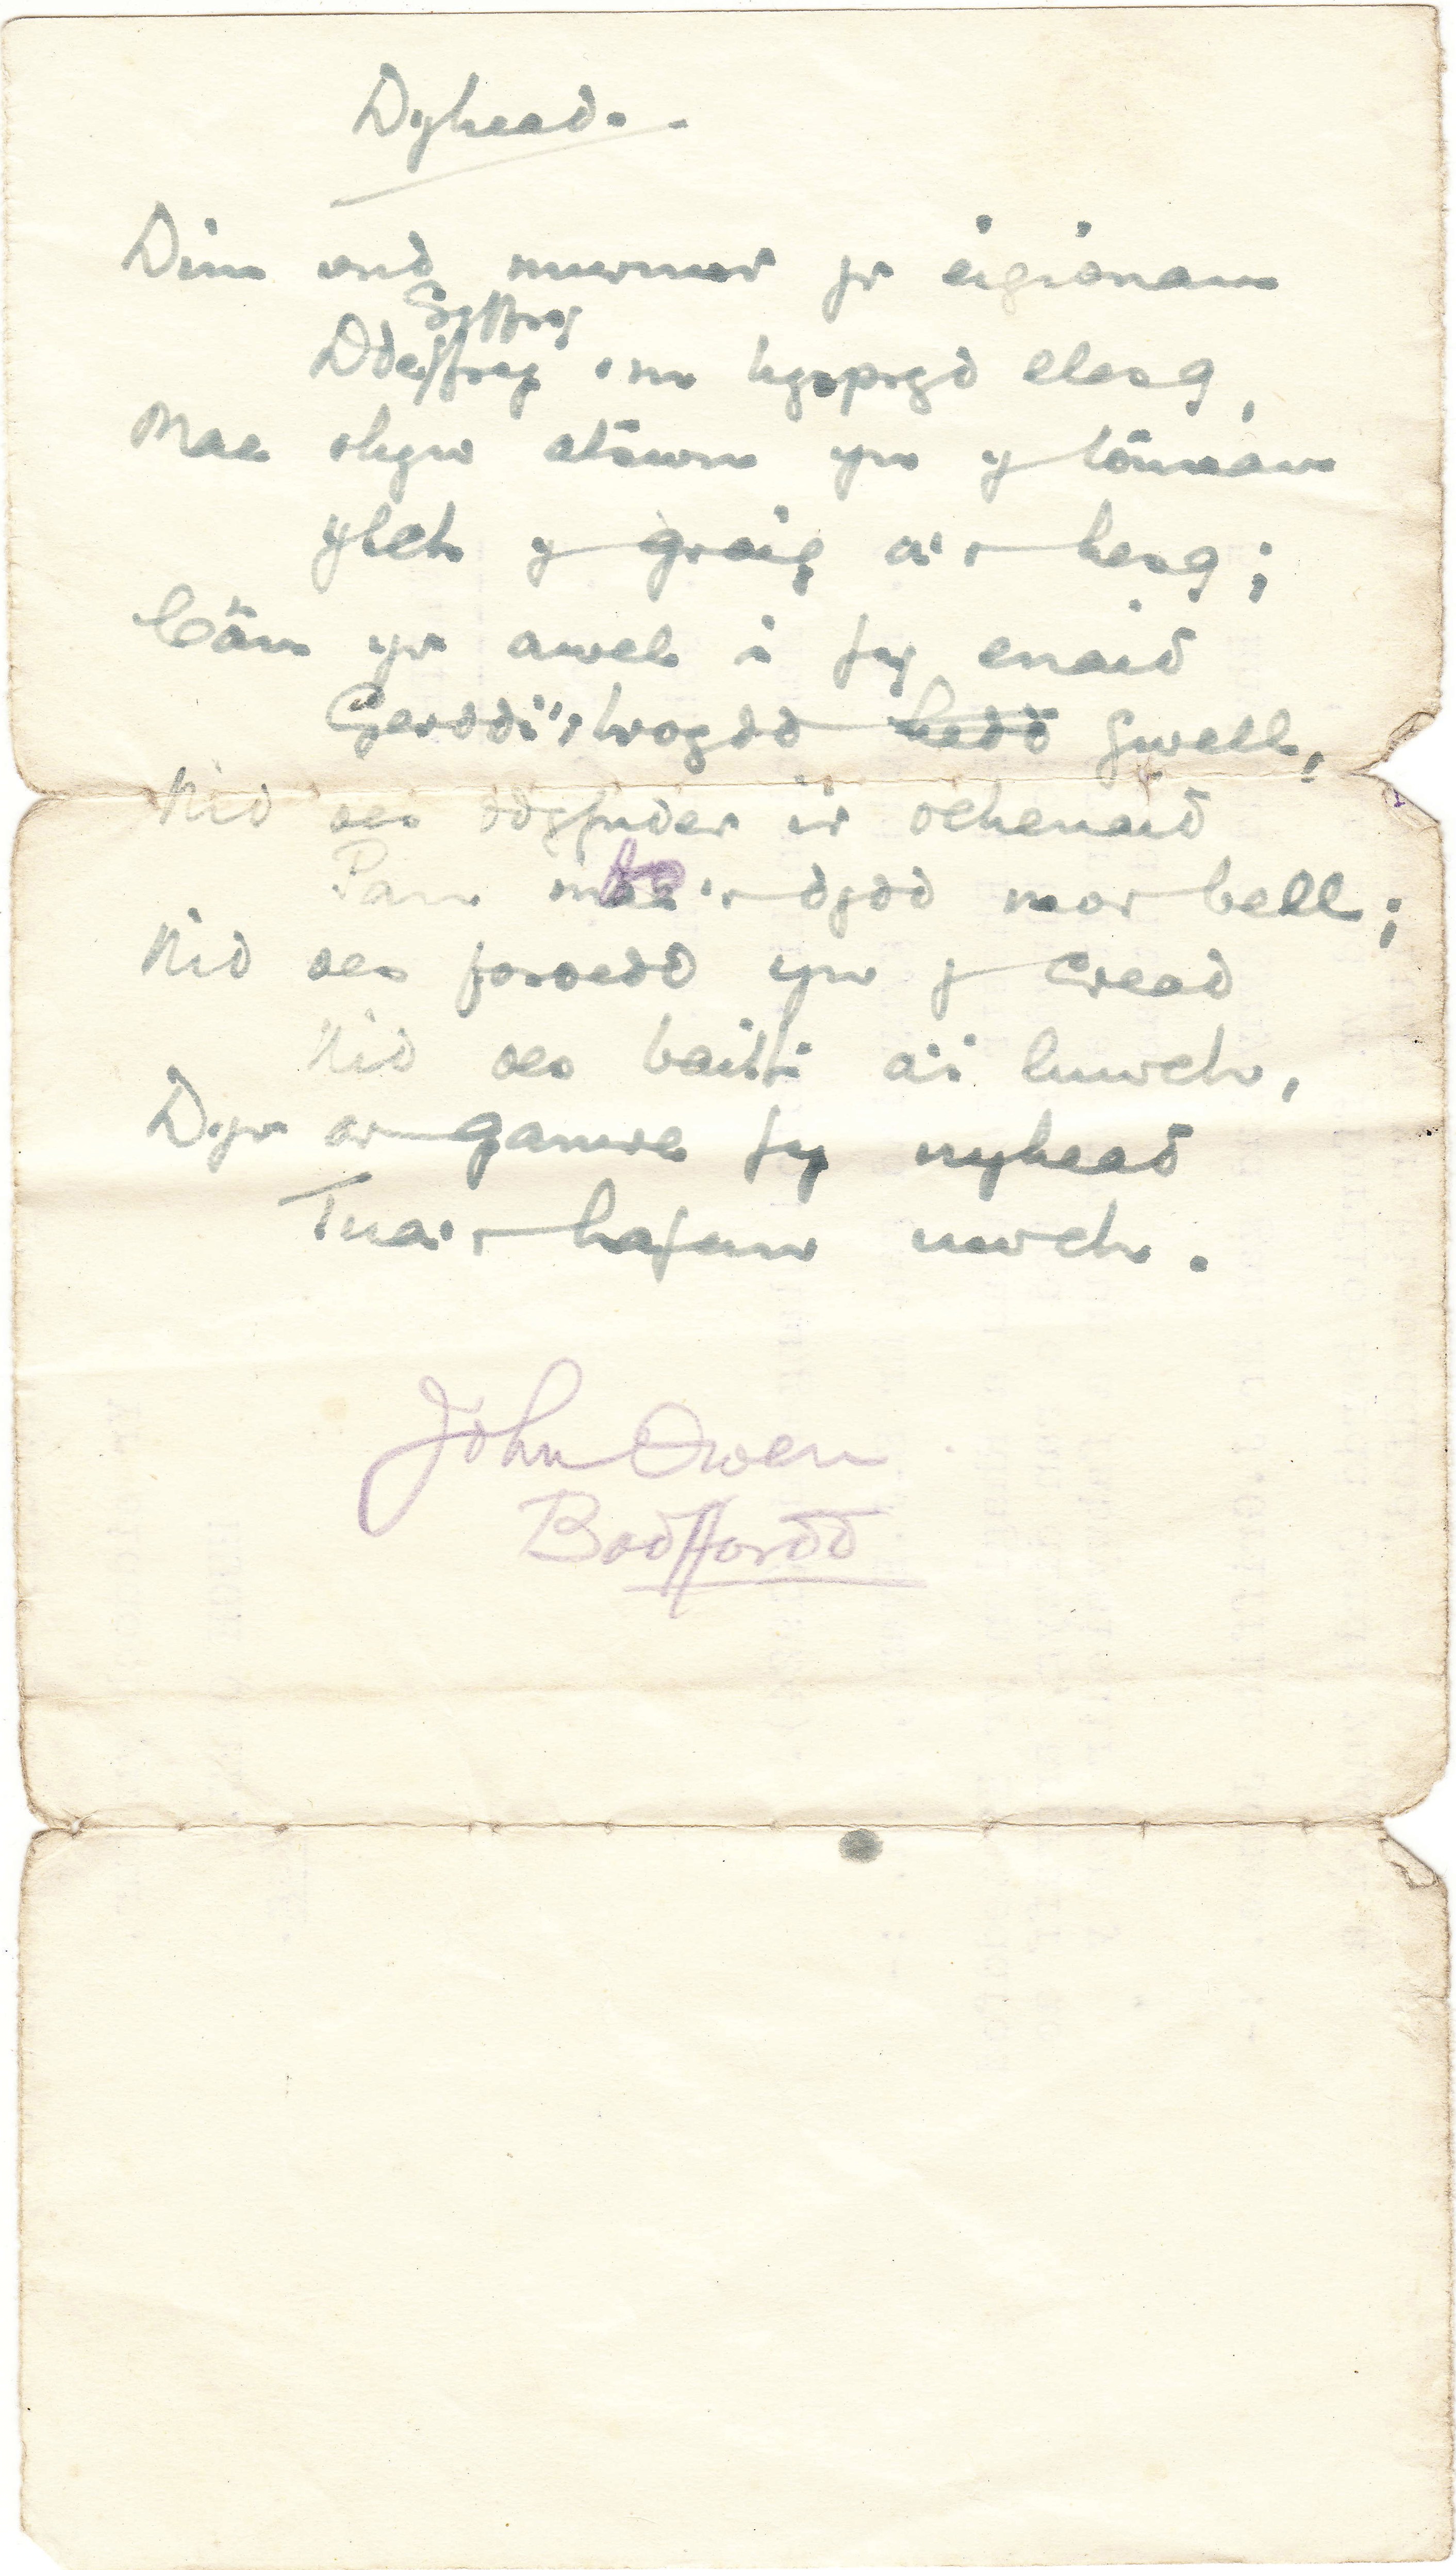 Dyhead.
Dim ond murmur yr eigionau
Gyffry
Ddeffry 'm hyspryd llesg,
Mae rhyw alawon yn y tonnau
Ylch y graig a'r hesg;
Cân yr awel i fy enaid
Gerddi'r hedd gwell,
Nid oes ddyfnder i'r ochenaid
Pan bo 'r dydd mor bell;
Nid oes foroedd yn y cread
Nid oes beithi a'i lluwch,
Dyr ar gamre fy nyhead
Tua'r hafan uwch.
John Owen
Bodffordd